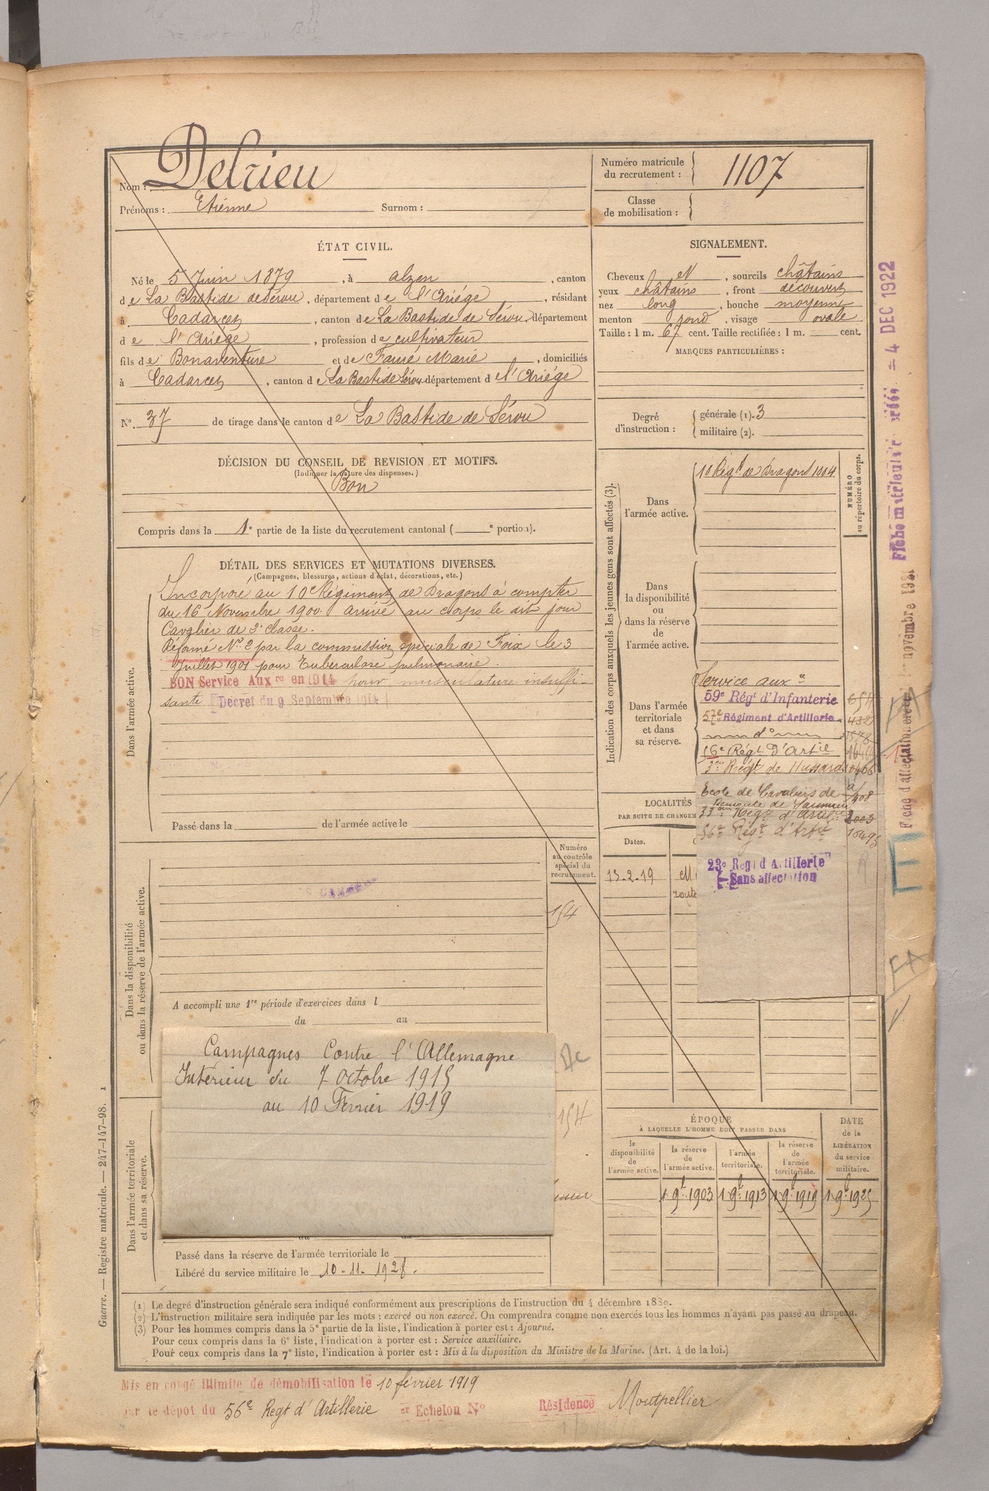 Nom : Delrieu
Prénoms : Etienne Surnom :
Numéro matricule du recrutement : 1107
Classe de mobilisation :
ÉTAT CIVIL.
Né le 5 Juin 1879, à Alzen, canton
de La Bastide de Sérou, département de l'Ariège, résidant
à Cadarcet, canton de La Bastide de Sérou, département
de l'Ariège, profession de cultivateur
fils de Bonaventure et de Fauré Marie, domiciliés
à Cadarcet, canton de La Bastide Sérou département de l'Ariège
N° 37 de tirage dans le canton de La Bastide de Sérou
SIGNALEMENT.
Cheveux et, sourcils châtains
yeux châtains, front découvert
nez long, bouche moyenne
menton rond, visage ovale
Taille : 1 m. 67 cent. Taille rectifiée : 1 m. cent.
MARQUES PARTICULIÈRES :
Degré d'instruction : générale (1). 3
militaire (2).
DÉCISION DU CONSEIL DE REVISION ET MOTIFS.
(Indiquer la nature des dispenses.)
Bon
Compris dans la 1e partie de la liste du recrutement cantonal ( e portion).
DÉTAIL DES SERVICES ET MUTATIONS DIVERSES.
(Campagnes, blessures, actions d'éclat, décorations, etc.)
Dans l'armée active.
Incorporé au 10e Régiment de Dragons à compter
du 16 Novembre 1900 arrivé au corps le dit jour
Cavalier de 2e classe.
Réformé N° 2 par la commission spéciale de Foix le 3
Juillet 1901 pour Tuberculose pulmonaire.
BON Service Auxre en 1914 pour musculature insuffi
sante Décret du 9 Septembre 1914
Passé dans la de l'armée active le
Indication des corps auxquels les jeunes gens sont affectés (3).
NUMÉRO au répertoire du corps.
Dans l'armée active.
10 Régt de Dragons 1104
Dans la disponibilité ou dans la réserve de l'armée active.
Dans l'armée territoriale et dans sa réserve.
Service auxe
59e Régt d'Infanterie
57e Régiment d'Artillerie
do
16e Régt d'Artie
2me Régt de Hussards
Ecole de Cavalerie de
Saumur
33e Régt d'Artie
56e Régt d'Artie
23e Regt d'Artillerie
Sans affectation
LOCALITÉS
PAR SUITE DE CHANGEM
Dates.
13.2.19
Dans la disponibilité ou dans la réserve de l'armée active.
Numéro au contrôle spécial du recrutement.
154
A accompli une 1re période d'exercices dans l
du au
Dans l'armée territoriale et dans sa réserve.
Campagnes Contre l'Allemagne
Intérieur du 7 octobre 1915
au 10 Fevrier 1919
154
Passé dans la réserve de l'armée territoriale le
Libéré du service militaire le 10-11-1928.
ÉPOQUE
À LAQUELLE L'HOMME DOIT PASSER DANS
la disponibilité de l'armée active.
la réserve de l'armée active.
l'armée territoriale.
la réserve de l'armée territoriale.
DATE de la LIBÉRATION du service militaire.
1 9bre 1903 1 9bre 1913 1 9bre 1919 1 9bre 1925
(1) Le degré d'instruction générale sera indiqué conformément aux prescriptions de l'instruction du 4 décembre 1889.
(2) L'instruction militaire sera indiquée par les mots : exercé ou non exercé. On comprendra comme non exercés tous les hommes n'ayant pas passé au drapeau.
(3) Pour les hommes compris dans la 5e partie de la liste, l'indication à porter est : Ajourné.
Pour ceux compris dans la 6e liste, l'indication à porter est : Service auxiliaire.
Pour ceux compris dans la 7e liste, l'indication à porter est : Mis à la disposition du Ministre de la Marine. (Art. 4 de la loi.)
Mis en congé illimité de démobilisation le 10 février 1919
par le dépot du 56e Régt d'Artillerie er Echelon N° Résidence Montpellier
Guerre. — Registre matricule. — 247-147-98. 1
Fiche matriculaire créée = 4 DEC 1922
Fiche d'affectation créée novembre 1931